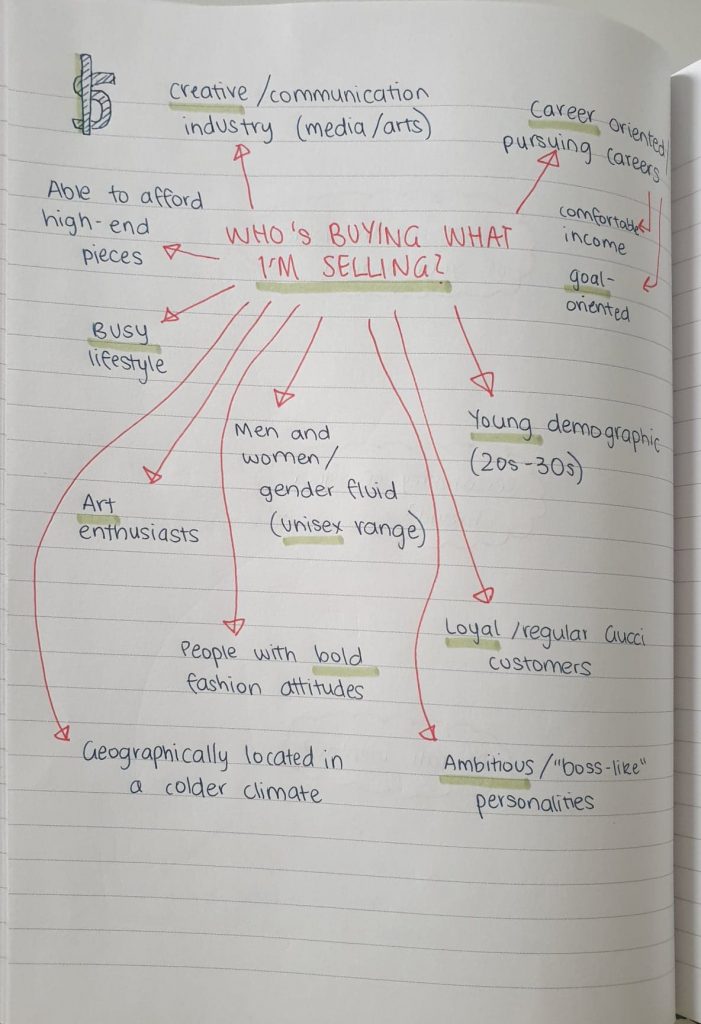 $
Creative/communication
industry (media/arts)
Career oriented/
pursuing careers
comfortable
income
goal-
oriented
Able to afford
high-end
pieces
WHO'S BUYING WHAT
I'M SELLING?
Busy
lifestyle
Men and
women/
gender fluid
(unisex range)
Young demographic
(20s-30s)
Art
enthusiasts
People with bold
fashion attitudes
Loyal/regular Gucci
customers
Geographically located in
a colder climate
Ambitious/"boss-like"
personalities